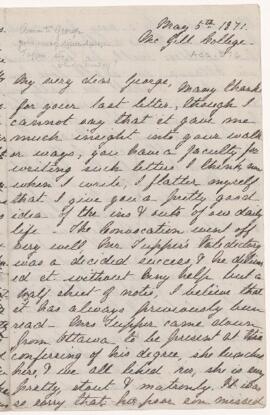 May 5th 1871.
McGill College.
My very dear George, Many thanks
for your last letter, though I
cannot say that it gave me
much insight into your walk
or ways, you have a faculty for
writing such letters I think, now
when I write, I flatter myself
that I give you a pretty good
idea of the ins & outs of our daily
life. The Convocation went off
very well Mr Tupper's Valedictory
was a decided success, & he deliver
ed it without any help but a
half sheet of notes, I believe that
it has always previously been
read - Mrs Tupper came down
from Ottawa to be present at the
conferring of his degree, she lunched
here, & we all liked her, she is very
pretty, stout & matronly. It was
so sorry that